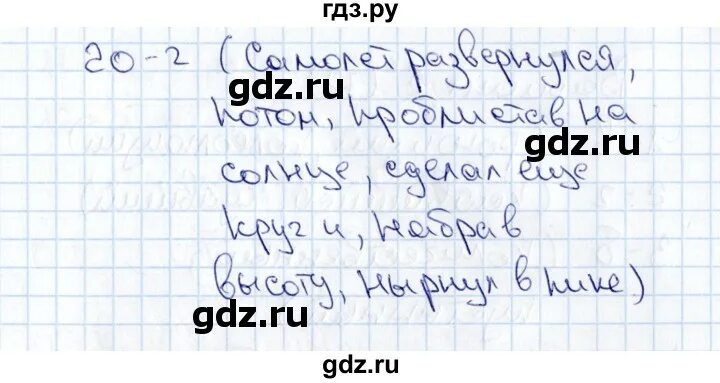 гдз.ру
20-2 (Самолет развернулся,
потом, проблистав на
солнце, сделал еще
круг и, набрав
высоту, нырнул в пике)
gdz.ru
gdz.ru
gdz.ru
gdz.ru